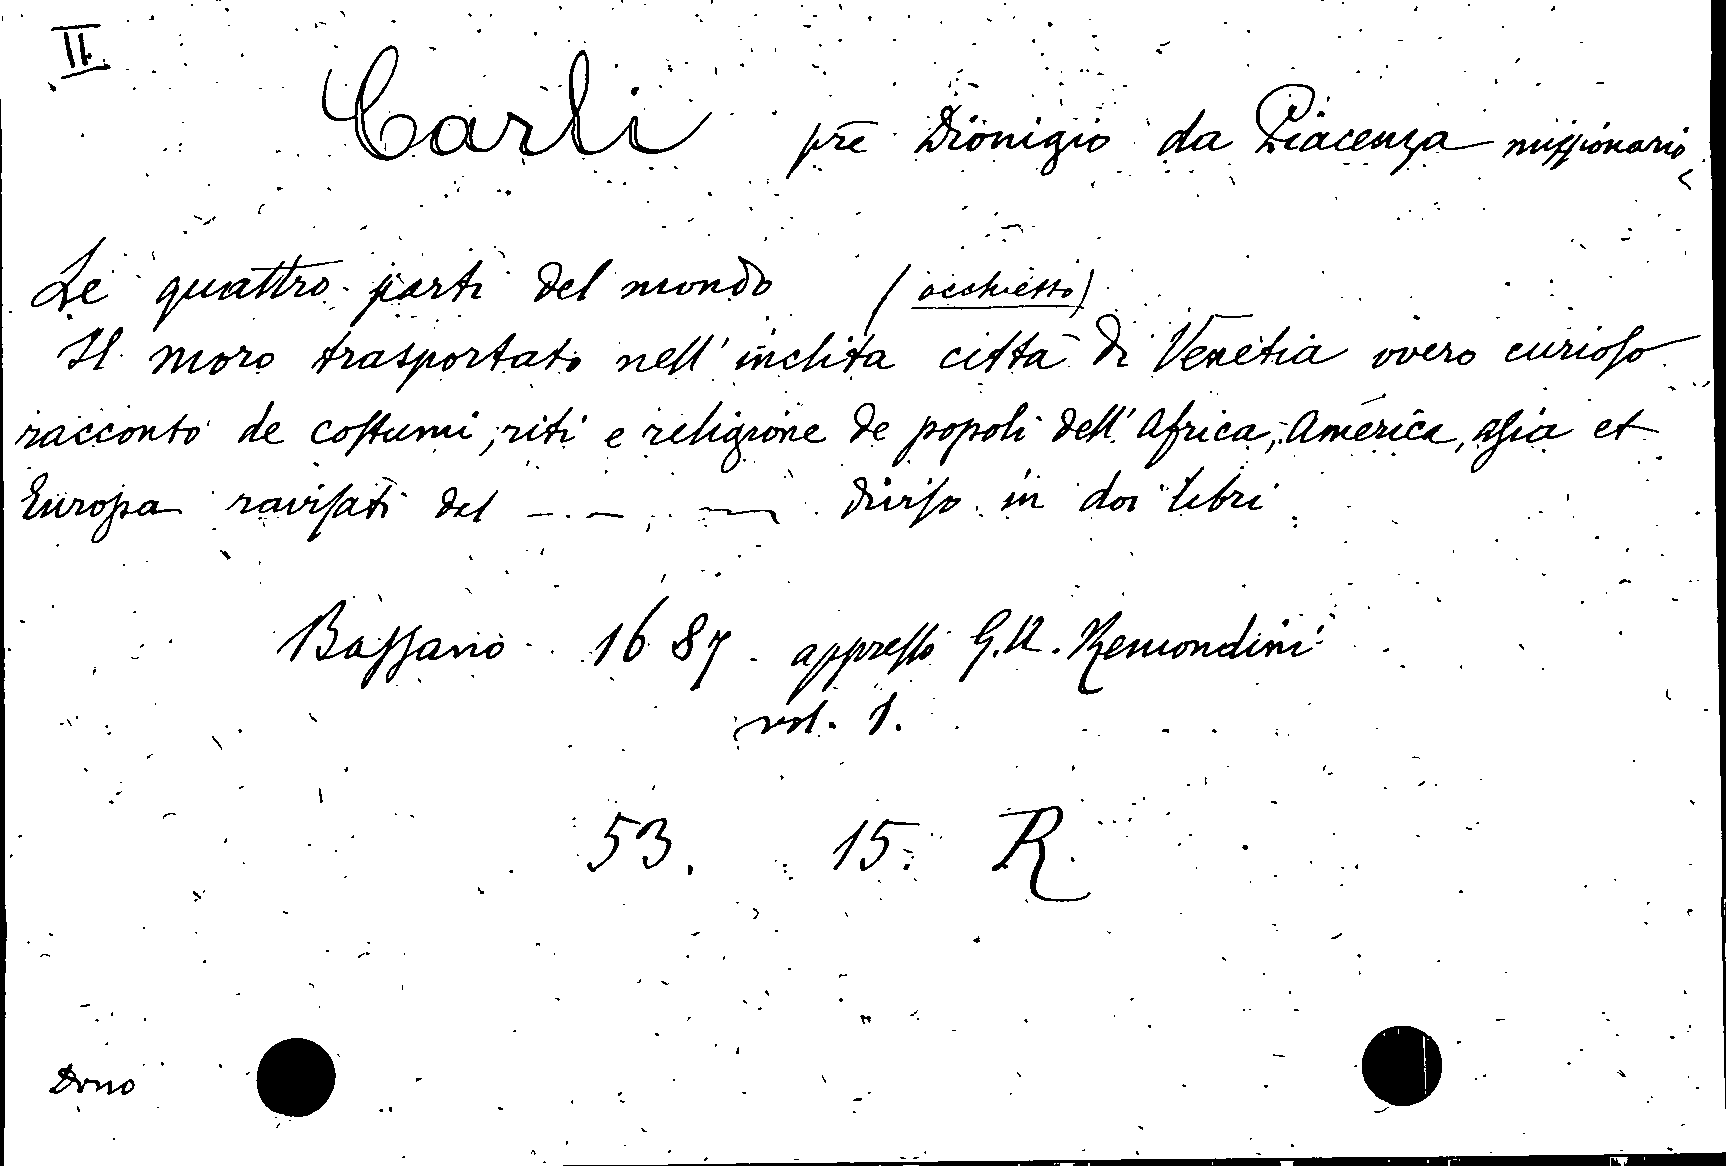 II.
Carli prē Dionigio da Piacenza miſſionario
Le quattro parti del mondo (occhietto)
Il moro trasportato nell' inclita città di Venetia overo curioſo
racconto de coſtumi, riti e religione de popoli dell' Africa, America, Aſia et
Europa raviſati dal — . — , — diviſo in doi libri
Baſſano 1687 appreſſo G. A. Remondini
vol. 1.
53. 15. R.
Dono